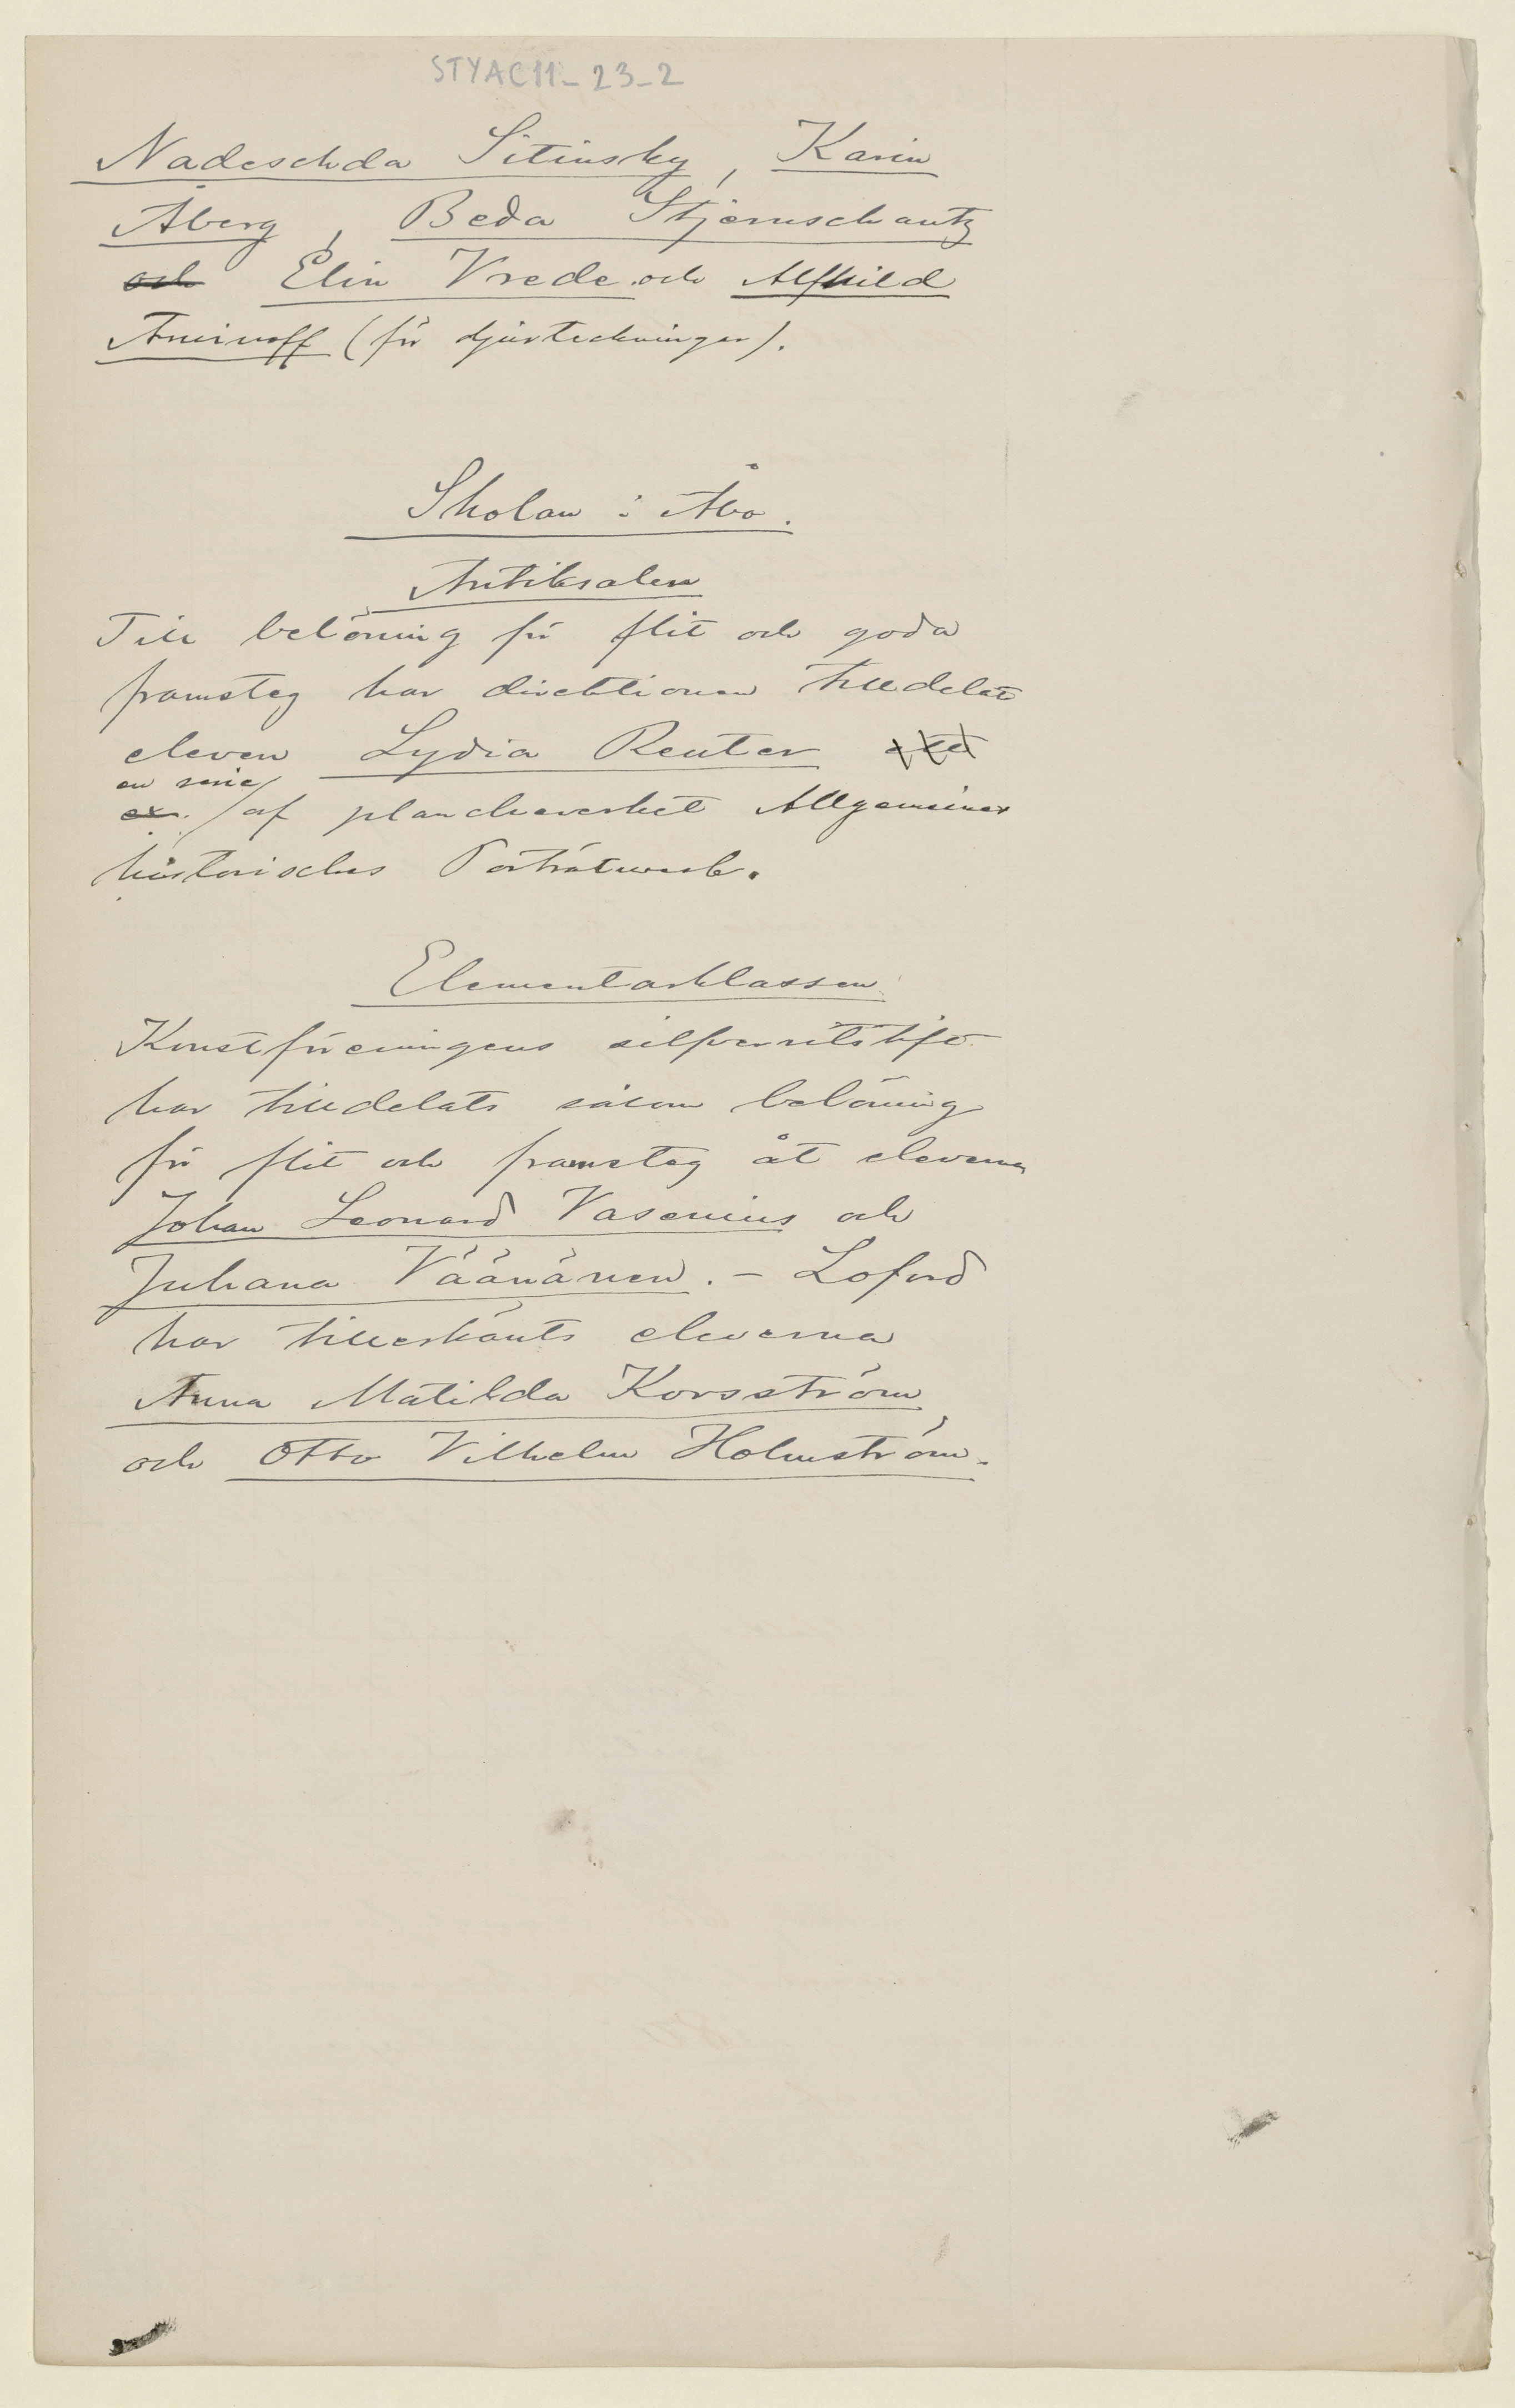 STYAC11_23_2
Nadeschda Sitinsky, Karin
Åberg, Beda Stjernschantz
och Elin Vrede och Alfhild
Aminoff (för djurteckningar).
Skolan i Åbo.
Antiksalen
Till belöning för flit och goda
framsteg har direktionen tilldelat
eleven Lydia Reuter ett
en serie
ex. af plancheverket Allgemeines
historisches Porträtwerk.
Elementarklassen
Konstföreningens silfverritstift
har tilldelats såsom belöning
för flit och framsteg åt eleverna
Johan Leonard Vasenius och
Juhana Väänänen. – Loford
har tillerkänts eleverna
Anna Matilda Korsström
och Otto Vilhelm Holmström.